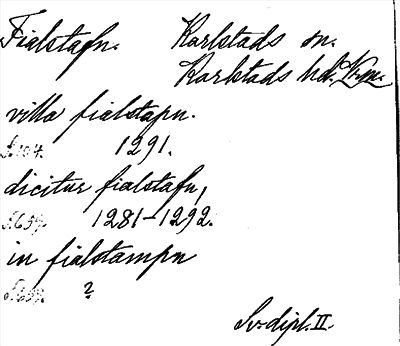 Fialstafn. Karlstads sn.
Karlstads hd.
villa fialstapn.
1291.
dicitur fialstafn,
1281-1292.
in fialstampn
?
Sv. dipl. II.